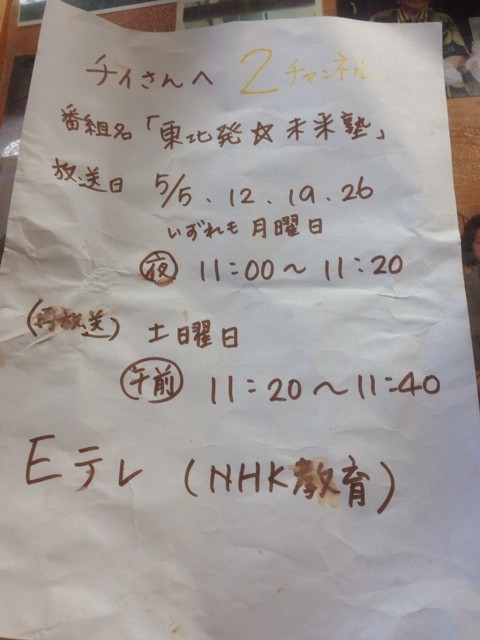 チイさんへ 2チャンネル
番組名「東北発☆未来塾」
放送日 5/5、12、19、26
いずれも月曜日
夜 11:00〜11:20
(再放送) 土曜日
午前 11:20〜11:40
Eテレ (NHK教育)